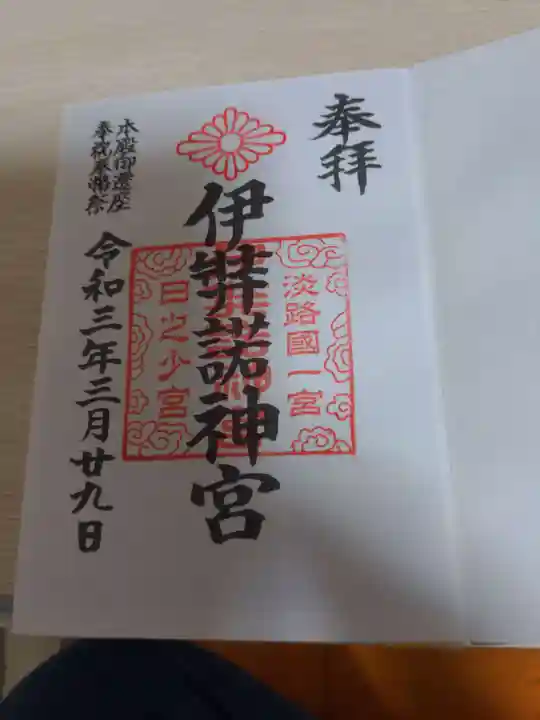 奉拝
淡路國一宮
伊弉諾神宮
日之少宮
本殿御遷座
奉祝奉幣祭
令和三年三月廿九日